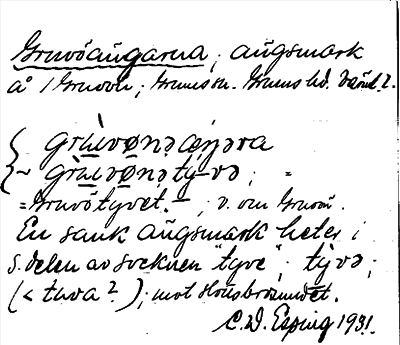 Gruvöängarna; ängsmark
å /Gruvön; Grums sn. Grums hd. Värml.
{ grʉ̀vønəæŋəra
~ grʉ̀vønətývə; =
= Gruvötyvet. –; v. om Gruvön.
En sank ängsmark heter i
S. delen av socknen "tyve"; tývə;
(< tuva ?); mot Slottsbrosundet.
C.W. Esping 1931.